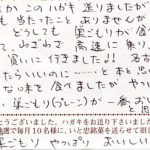 か このハガキ 送りましたが
も当たったこと ありませんが
どうしても 巣ごもりが食
て 山ざわざ 高速 乗り、
買いに行きました!! 名古
たらいいのに……と 本と思
な味を 食べましたが やっ
巣ごもり(プレーン)が 一番お
と思
とうございました。ハガキをお送り下さいました
選で毎月10名様に、いと忠銘菓を送らせて頂
巣ごもり やっぱり おいしい